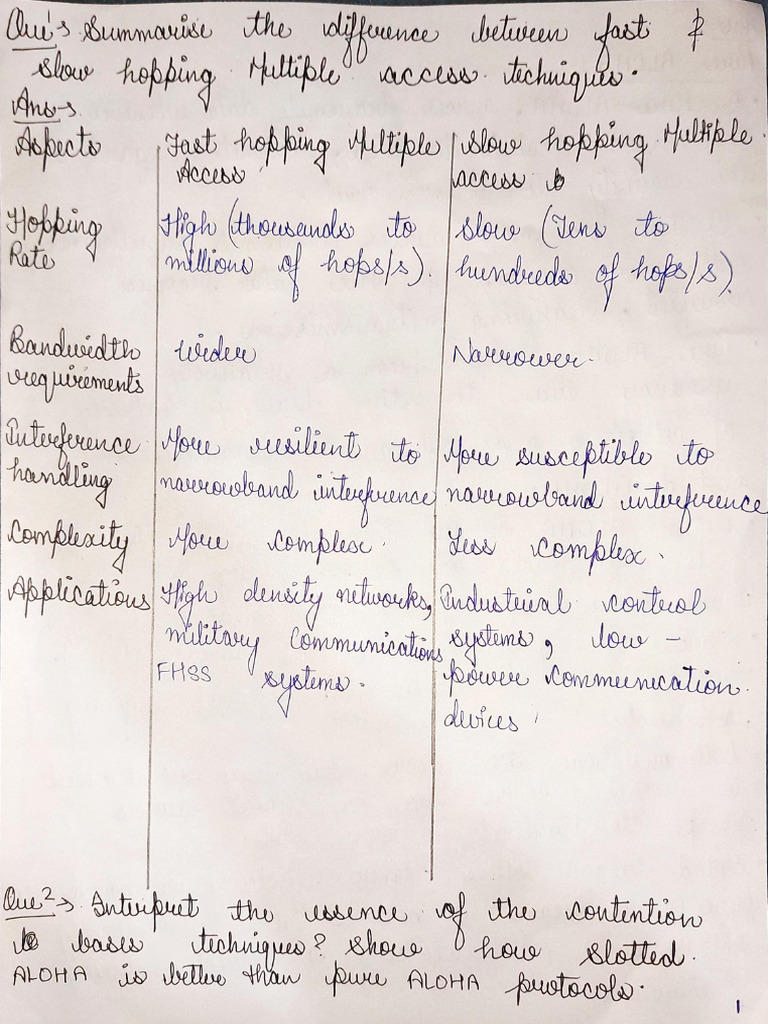 Que¹→ Summarise the difference between fast &
slow hopping Multiple access techniques.
Ans→
Aspects | Fast hopping Multiple Access | Slow hopping Multiple access
Hopping Rate | High (thousands to millions of hops/s). | slow (Tens to hundreds of hops/s)
Bandwidth requirements | Wider | Narrower.
Interference handling | More resilient to narrowband interference | More susceptible to narrowband interference
Complexity | More complex. | Less complex.
Applications | High density networks, military communications FHSS systems. | Industrial control systems, low - power communication devices.
Que²→ Interpret the essence of the contention
bases techniques? Show how slotted
ALOHA is better than pure ALOHA protocols.
1